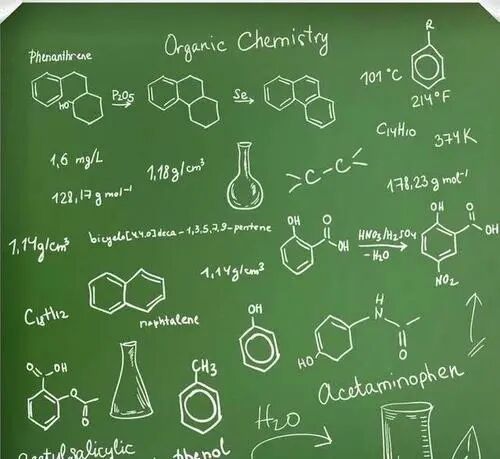 Organic Chemistry
Phenanthrene
R
HO
P2O5
Se
101°C
214°F
C14H10
374K
1,6 mg/L
1,18g/cm³
C-C
128,17g mol⁻¹
178,23g mol⁻¹
OH
O
OH
HNO3/H2SO4
-H2O
OH
O
OH
NO2
1,14g/cm³
bicyclo[4,4,0]deca-1,3,5,7,9-pentene
1,14g/cm³
C18H12
naphtalene
OH
H
N
O
HO
Acetaminophen
O
OH
O
O
CH3
H2O
acetylsalicylic
phenol